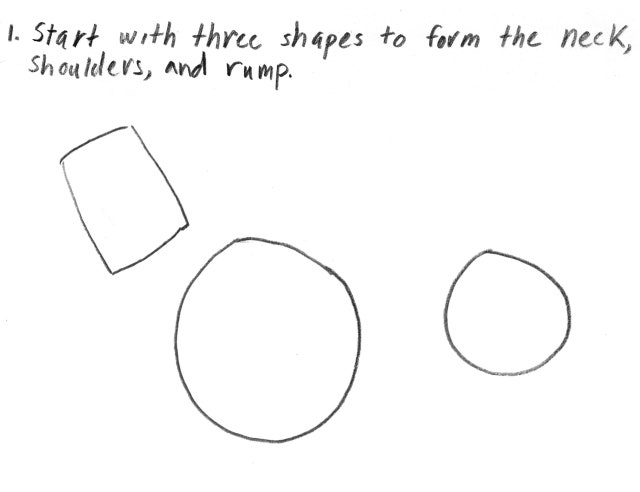 1. Start with three shapes to form the neck,
shoulders, and rump.